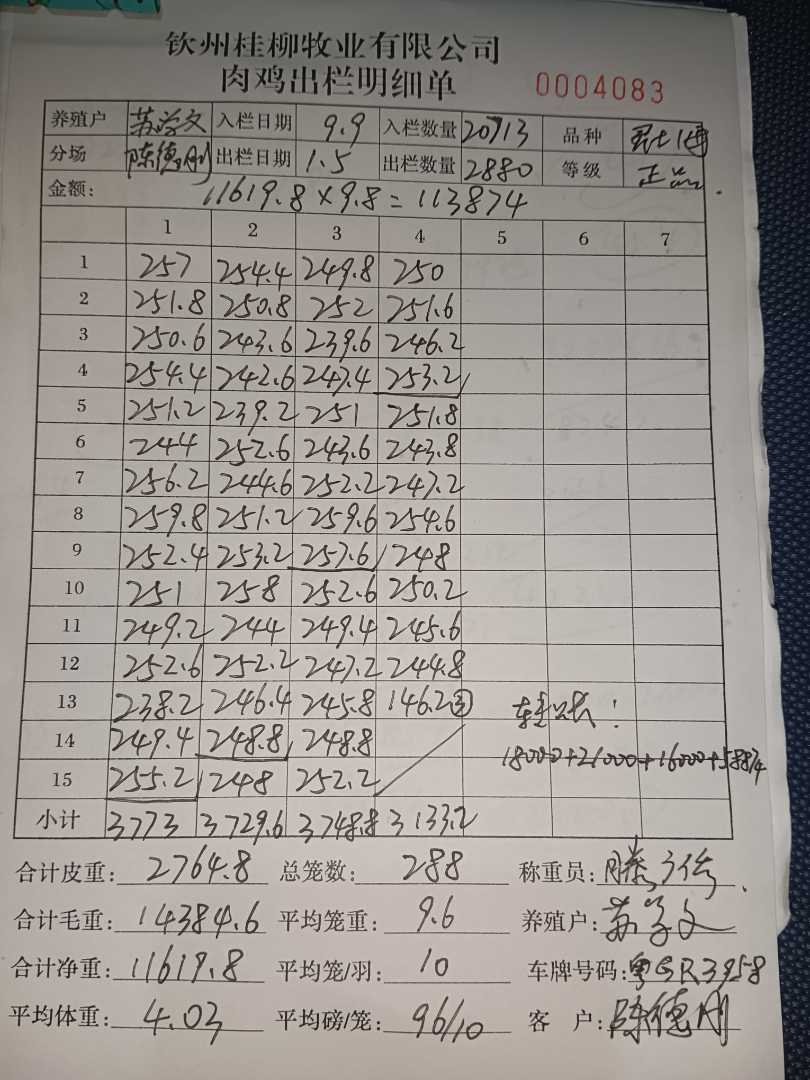 钦州桂柳牧业有限公司
肉鸡出栏明细单 0004083
养殖户 苏学文 入栏日期 9.9 入栏数量 20713 品种
分场 陈德刚 出栏日期 1.5 出栏数量 2880 等级 正品
金额: 11619.8×9.8=113874
1 2 3 4 5 6 7
1 257 254.4 249.8 250
2 251.8 250.8 252 251.6
3 250.6 243.6 239.6 246.2
4 254.4 242.6 247.4 253.2
5 251.2 239.2 251 251.8
6 244 252.6 243.6 243.8
7 256.2 244.6 252.2 247.2
8 259.8 251.2 259.6 254.6
9 252.4 253.2 257.6 248
10 251 258 252.6 250.2
11 249.2 244 249.4 245.6
12 252.6 252.2 247.2 244.8
13 238.2 246.4 245.8 146.2③
14 249.4 248.8 248.8
15 255.2 248 252.2
18000+21000+16000+58874
小计 3773 3729.6 3748.8 3133.2
合计皮重: 2764.8 总笼数: 288 称重员:
合计毛重: 14384.6 平均笼重: 9.6 养殖户: 苏学文
合计净重: 11619.8 平均笼/羽: 10 车牌号码: 粤GR3958
平均体重: 4.03 平均磅/笼: 96/10 客 户: 陈德刚